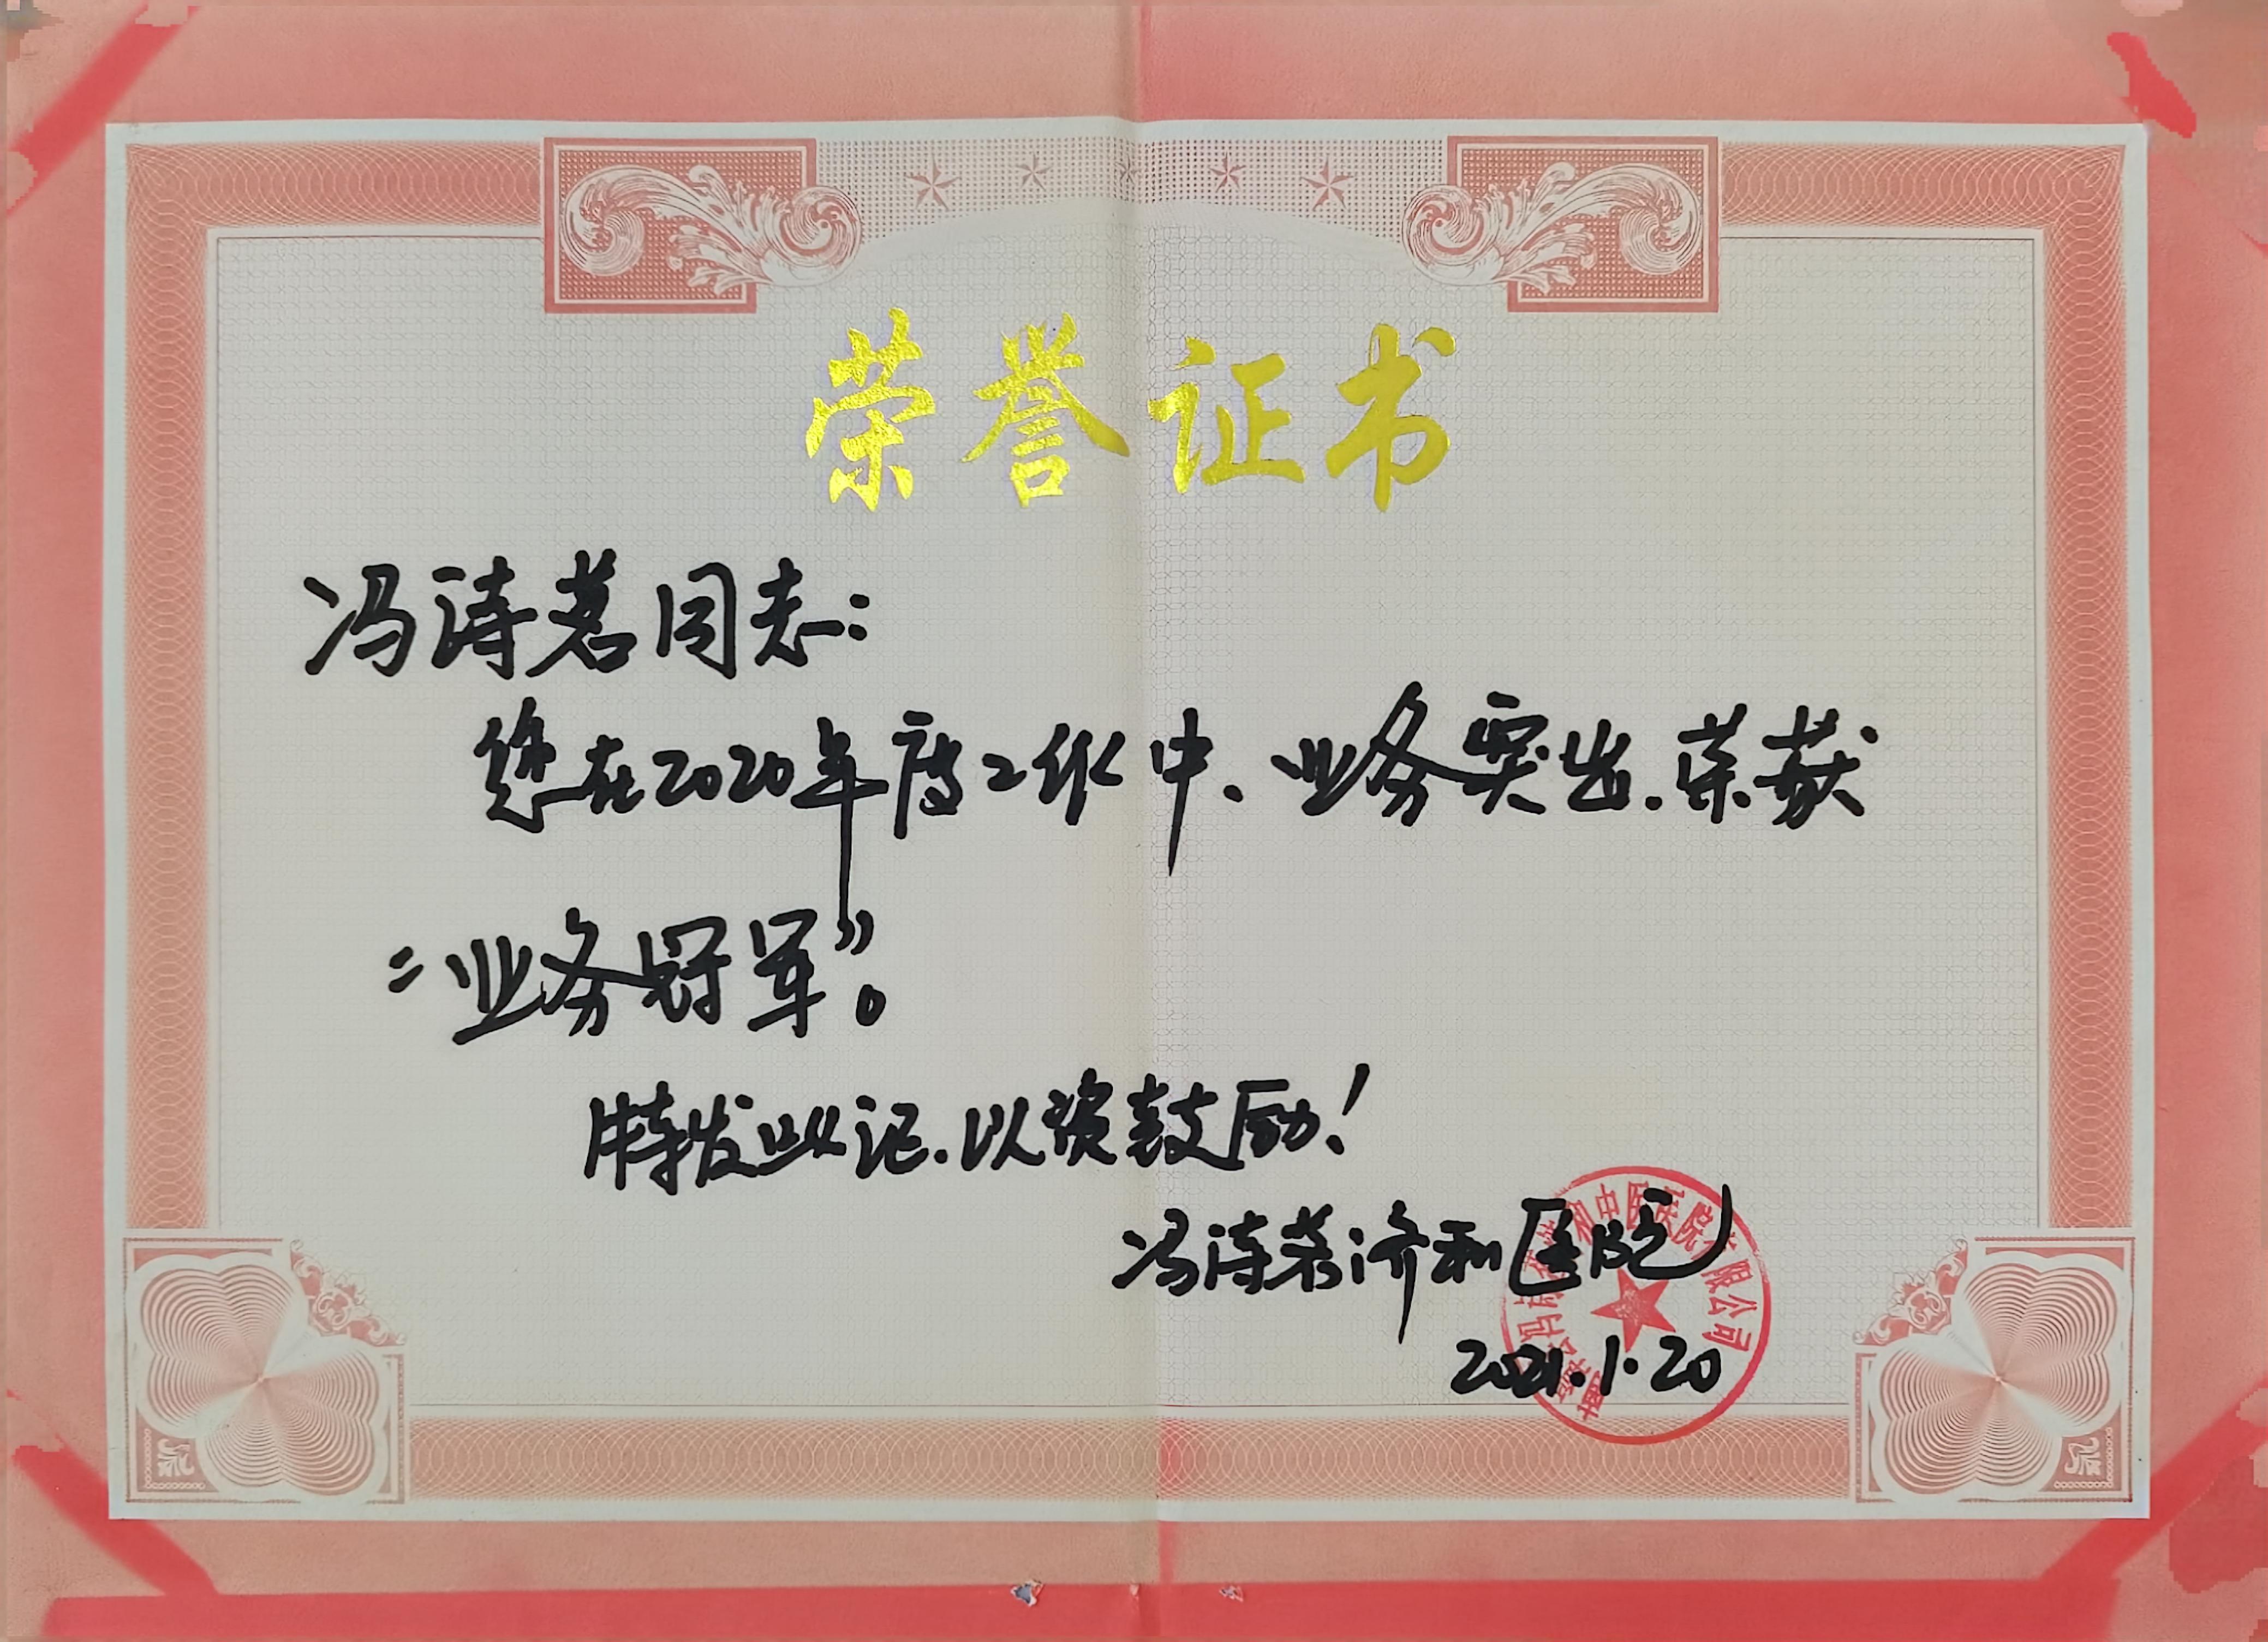 荣誉证书
冯涛茗同志：
您在2020年度工作中、业务突出.荣获
“业务冠军”。
特发此记.以资鼓励！
冯涛茗济和医院
2021.1.20
和中医医院有限公司